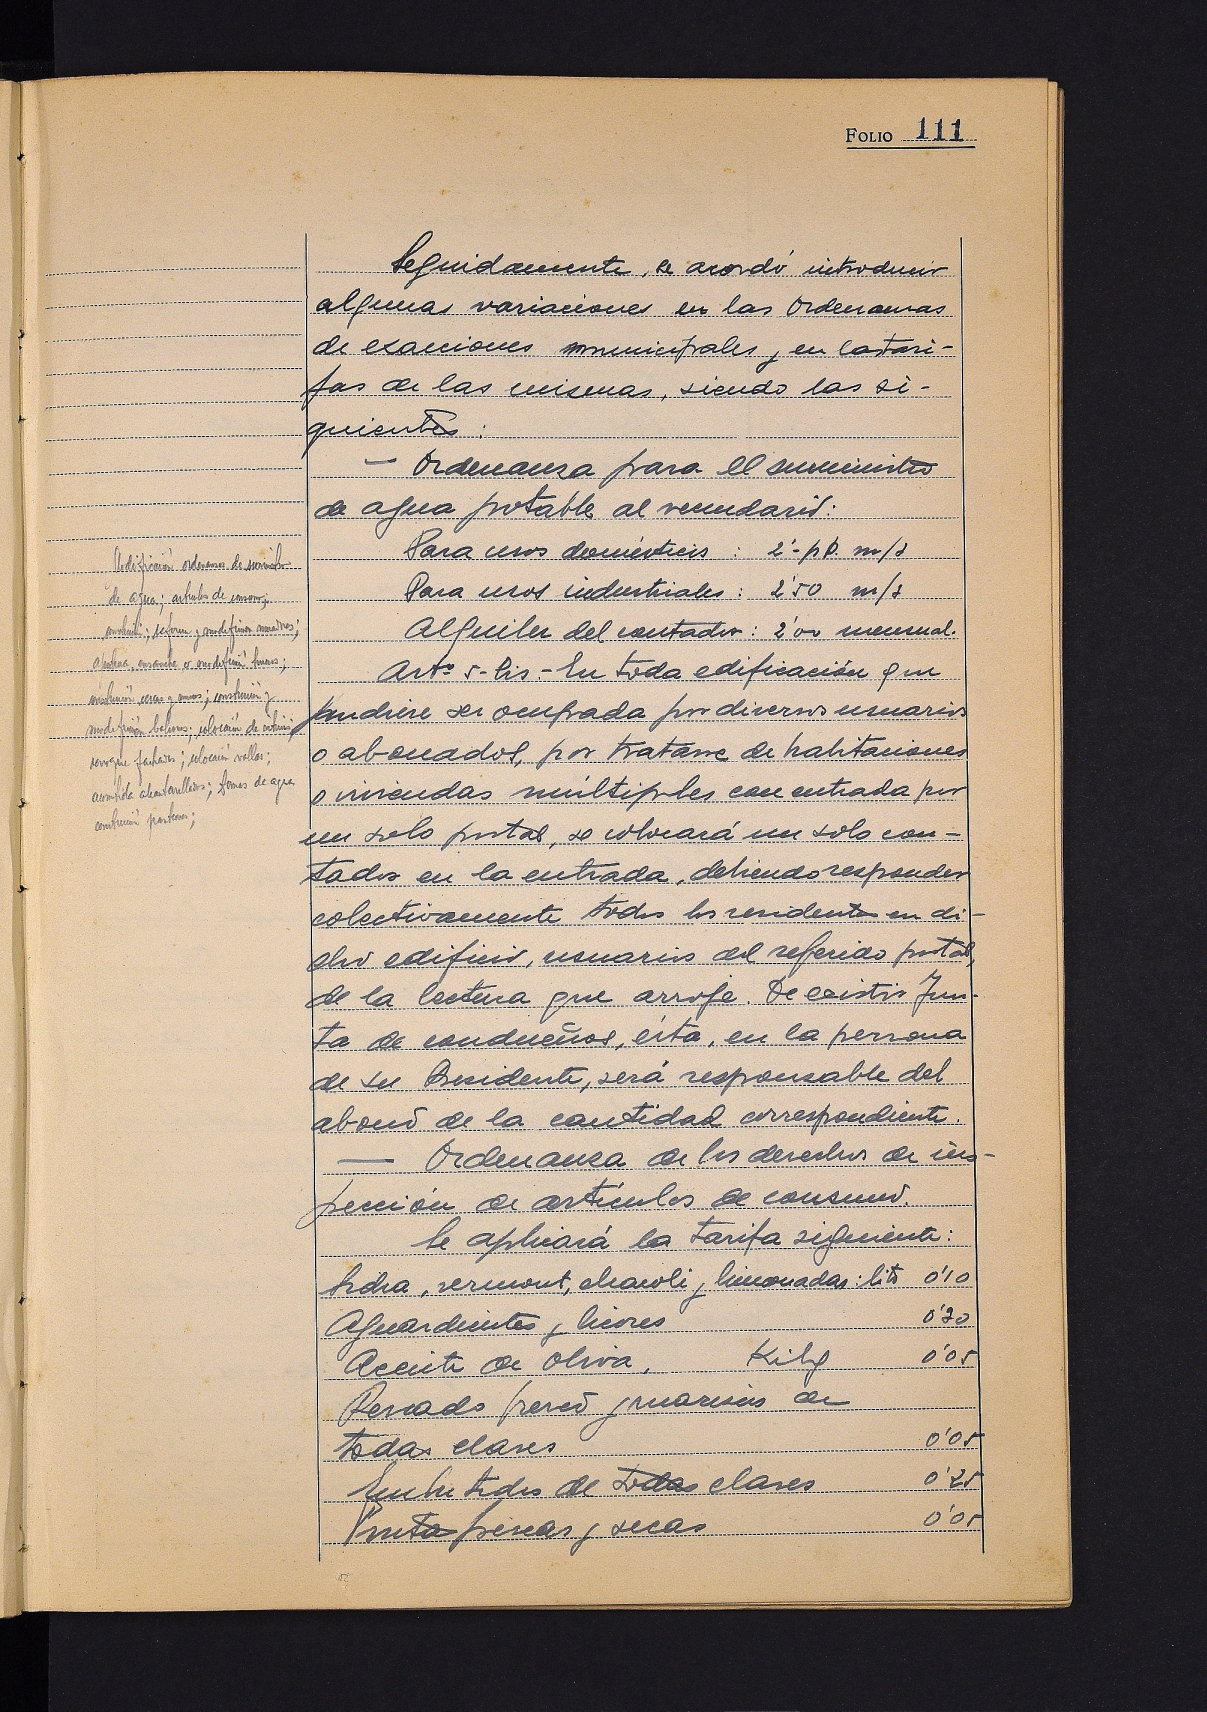 FOLIO 111
Seguidamente, se acordó introducir
algunas variaciones en las Ordenanzas
de exacciones municipales y en las tari-
fas de las mismas, siendo las si-
guientes:
— Ordenanza para el suministro
de agua potable al vecindario:
Para usos domésticos : 2'- m/3
Para usos industriales : 2'50 m/3
Alquiler del contador : 2'00 mensual.
Artº 5-bis.- En toda edificación que
pudiere ser ocupada por diversos usuarios
o abonados, por tratarse de habitaciones
o viviendas múltiples con entrada por
un solo portal, se colocará un solo con-
tador en la entrada, debiendo responder
colectivamente todos los residentes en di-
cho edificio, usuarios del referido portal,
de la lectura que arroje. De existir Jun-
ta de condueños, ésta, en la persona
de su Presidente, será responsable del
abono de la cantidad correspondiente.
— Ordenanza de los derechos de ins-
pección de artículos de consumo.
Se aplicará la tarifa siguiente:
Sidra, vermout, chacoli y limonadas: litº 0'10
Aguardientes y licores 0'20
Aceite de oliva, Kilg 0'05
Pescado fresco y mariscos de
todas clases 0'05
Embutidos de todas clases 0'25
Fruta frescas y secas 0'05
Modificación ordenanzas de suministro
de agua; artículos de consumo;
construcción; reforma y modificación miradores;
apertura, ensanche o modificación huecos;
construcción casas y ; construcción y
modificación balcones; colocación de
revoque fachadas; colocación vallas;
acometida alcantarillados; tomas de agua
construcción panteones;